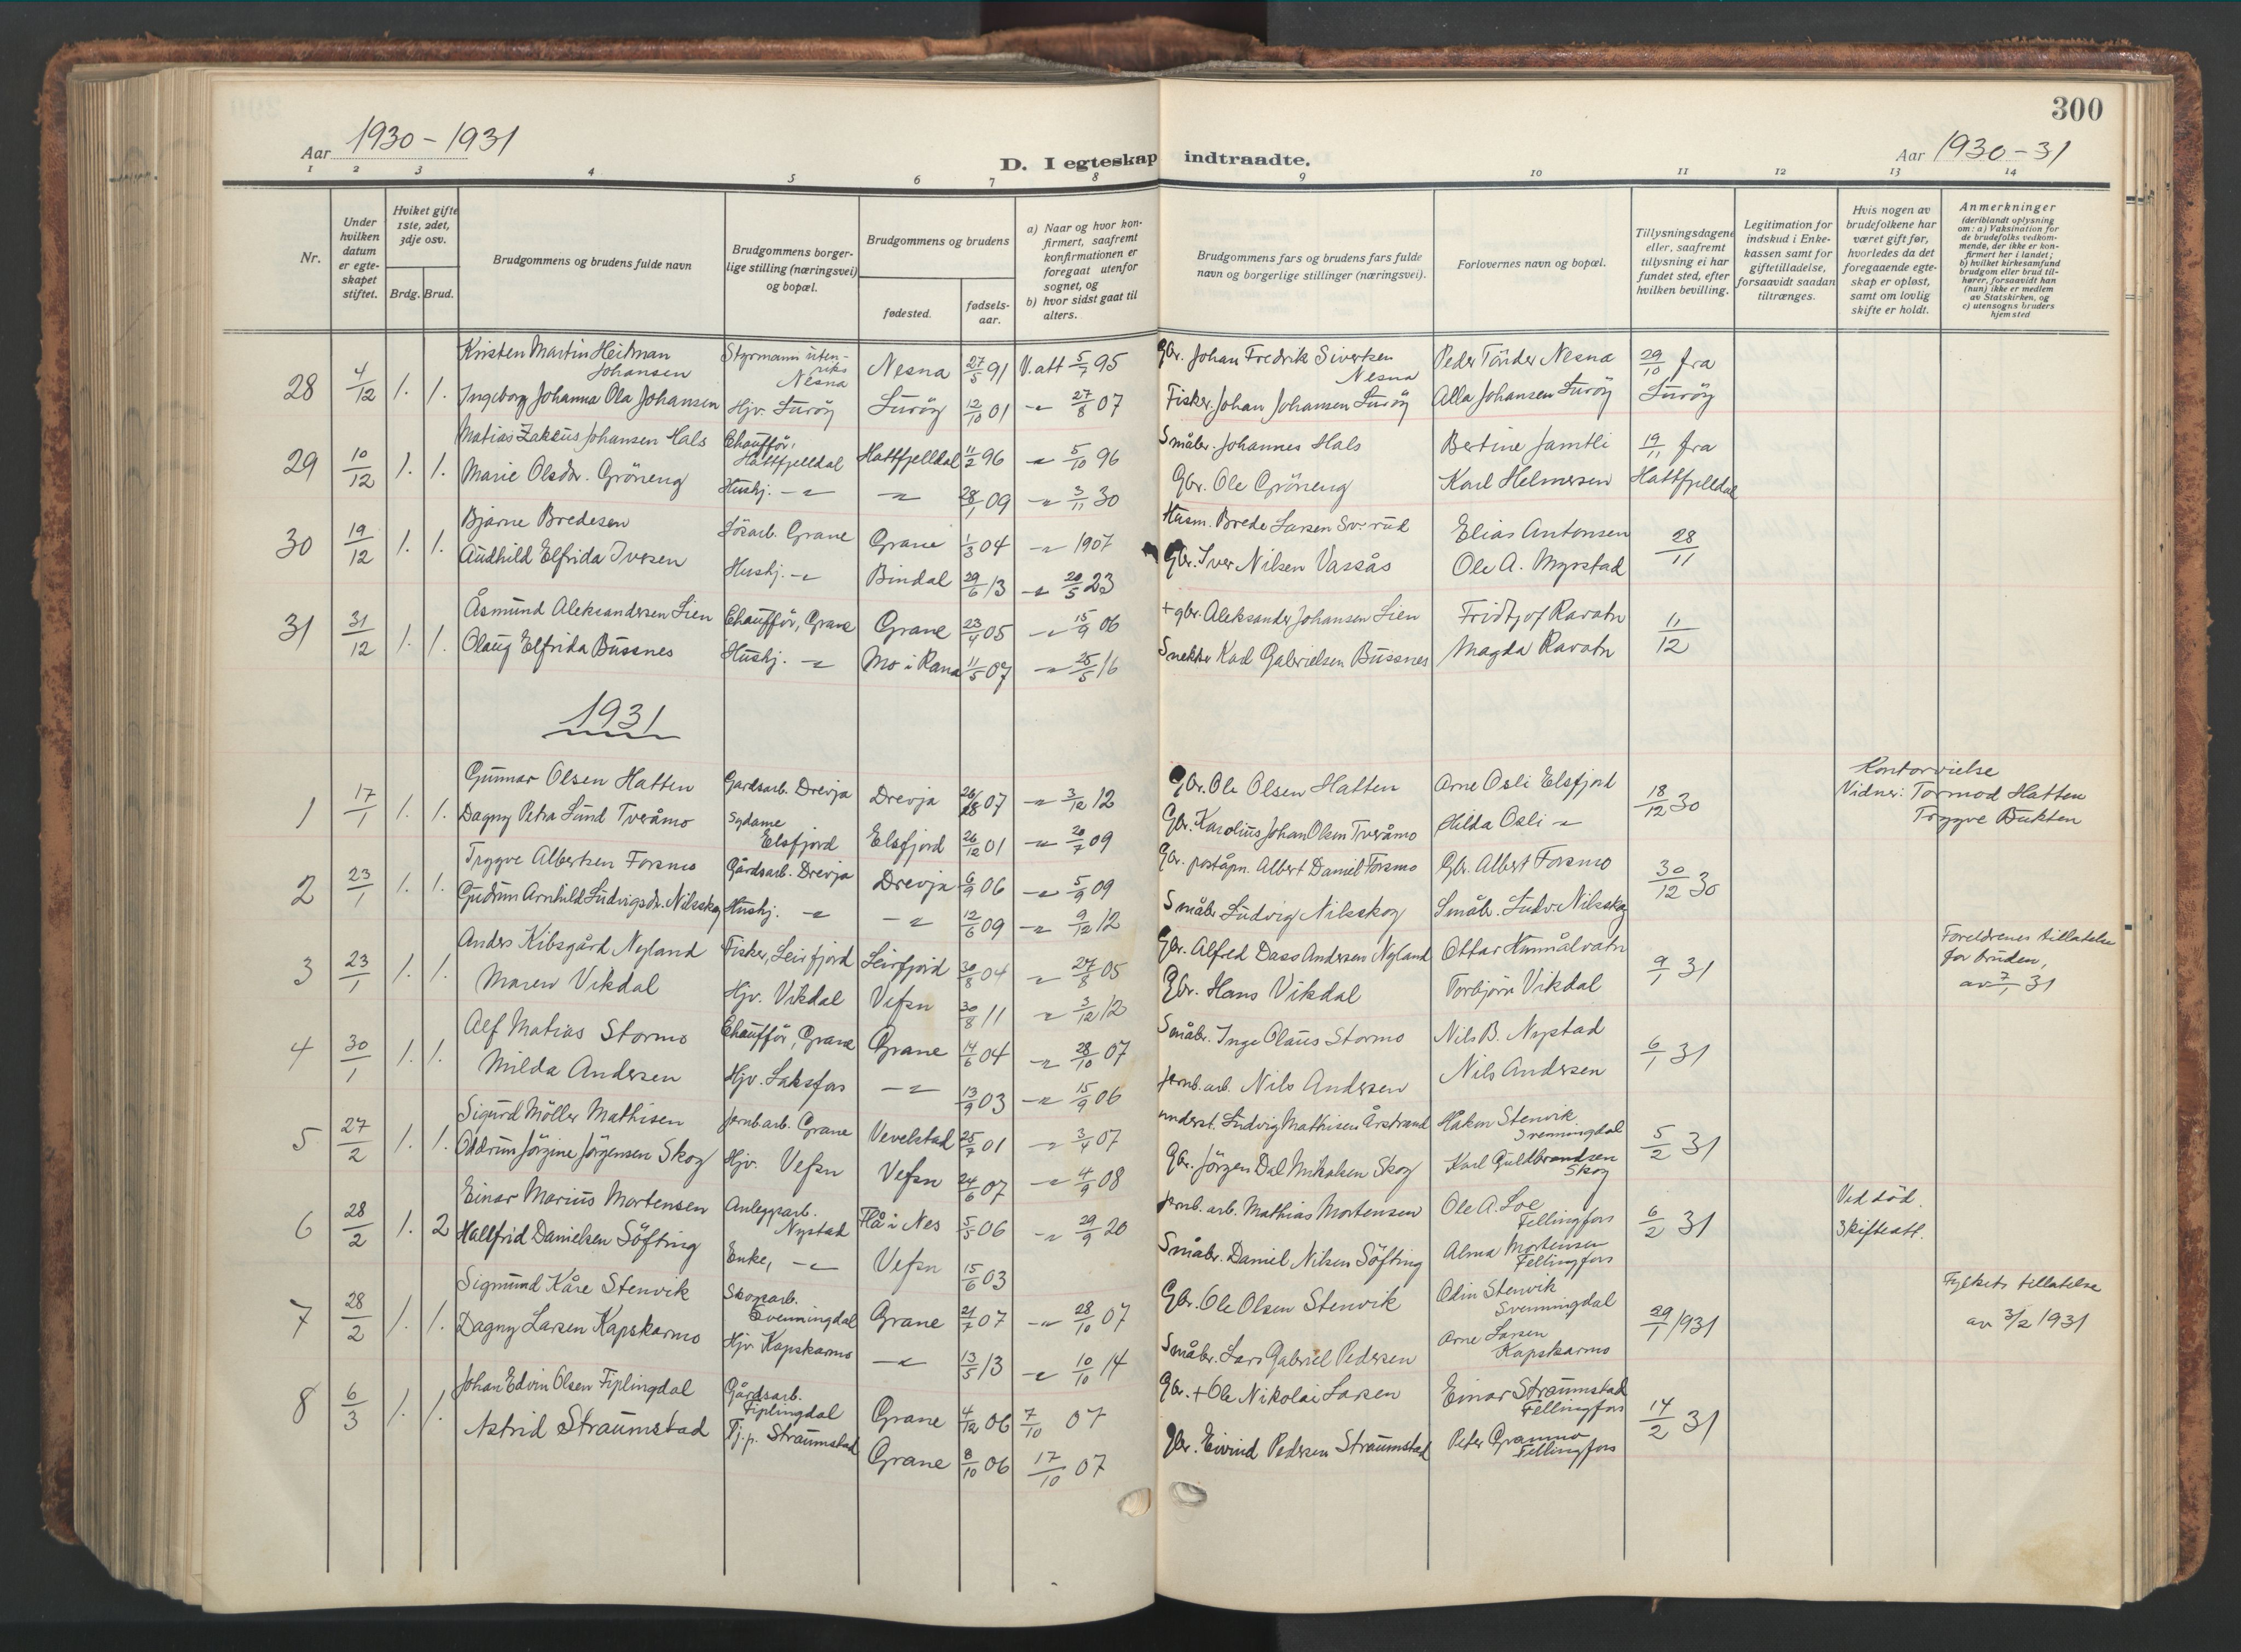 300
Aar 1930-1931
D. I egteskap indtraadte.
Aar 1930-31
1 2 3 4 5 6 7 8 9 10 11 12 13 14
Nr.
Under hvilken datum er egteskapet stiftet.
Hvilket gifte 1ste, 2det, 3dje osv.
Brdg. Brud.
Brudgommens og brudens fulde navn
Brudgommens borgerlige stilling (næringsvei) og bopæl.
Brudgommens og brudens
fødested.
fødselsaar.
a) Naar og hvor konfirmert, saafremt konfirmationen er foregaat utenfor sognet, og
b) hvor sidst gaat til alters.
Brudgommens fars og brudens fars fulde navn og borgerlige stillinger (næringsvei).
Forlovernes navn og bopæl.
Tillysningsdagene eller, saafremt tillysning ei har fundet sted, efter hvilken bevilling.
Legitimation for indskud i Enkekassen samt for giftetilladelse, forsaavidt saadan tiltrænges.
Hvis nogen av brudefolkene har været gift før, hvorledes da det foregaaende egteskap er opløst, samt om lovlig skifte er holdt.
Anmerkninger
(deriblandt oplysning om: a) Vaksination for de brudefolks vedkommende, der ikke er konfirmert her i landet; b) hvilket kirkesamfund brudgom eller brud tilhører, forsaavidt han (hun) ikke er medlem av Statskirken, og c) utensogns bruders hjemsted
28 4/12 1. 1. Kristen Martin Heitman Johansen Styrmann utenriks Nesna Nesna 27/5 91 V. att 5/7 95 Gbr. Johan Fredrik Sivertsen Nesna Peder Tönder Nesna 29/10 fra
Ingeborg Johanna Ola Johansen Hjv. Luröy Luröy 12/10 01 -"- 27/8 07 Fisker. Johan Johansen Luröy Alla Johansen Luröy Luröy
29 10/12 1. 1. Matias Zakeus Johansen Hals Chaufför, Hattfjelldal Hattfjelldal 11/2 96 -"- 5/10 96 Småbr. Johannes Hals Bertine Jamtli 19/11 fra
Marie Olsdr. Gröneng Hushj. -"- -"- 28/1 09 -"- 3/11 30 Gbr. Ole Gröneng Karl Helmersen Hattfjelldal
30 19/12 1. 1. Bjarne Bredesen Lösarb. Grane Grane 1/3 04 -"- 1907 Husm. Brede Larsen Elias Antonsen 28/11
Audhild Elfrida Iversen Hushj. -"- Bindal 29/6 13 -"- 20/5 23 Gbr. Iver Nilsen Vassås Ole A. Myrstad
31 31/12 1. 1. Åsmund Aleksandersen Lien Chaufför, Grane Grane 23/4 05 -"- 15/9 06 + gbr. Aleksander Johansen Lien Fridtjof Ravatn 11/12
Olaug Elfrida Bussnes Hushj. -"- Mo i Rana 11/5 07 -"- 25/5 16 Snekker Karl Gabrielsen Bussnes Magda Ravatn
1931
1 17/1 1. 1. Gunnar Olsen Hatten Gardsarb. Drevja Drevja 07 -"- 3/12 12 Gbr. Ole Olsen Hatten Arne Osli Elsfjord 18/12 30 Kontorvielse
Dagny Petra Lund Tveråmo Sydame Elsfjord Elsfjord 26/12 01 -"- 20/7 09 Gbr. Karolius Johan Olsen Tveråmo Hilda Osli -"- Vidner: Tormod Hatten
Trygve Bukten
2 23/1 1. 1. Trygve Albertsen Forsmo Gårdsarb. Drevja Drevja 6/9 06 -"- 5/9 09 Gbr. poståpn. Albert Daniel Forsmo Gbr. Albert Forsmo 30/12 30
Gudrun Arnhild Ludvigsdr. Nilsskog Hushj. -"- -"- 12/6 09 -"- 9/12 12 Småbr. Ludvig Nilsskog Småbr. Ludv. Nilsskog
3 23/1 1. 1. Anders Kibsgård Nyland Fisker, Leirfjord Leirfjord 30/8 04 -"- 27/8 05 Gbr. Alfred Dass Andersen Nyland Ottar Hummålvatn 9/1 31 Foreldrenes tillatelse
Maren Vikdal Hjv. Vikdal Vefsn 30/8 11 -"- 3/12 12 Gbr. Hans Vikdal Torbjörn Vikdal for bruden, av 7/1 31
4 30/1 1. 1. Alf Matias Stormo Chaufför, Grane Grane 14/6 04 -"- 28/10 07 Småbr. Inge Olaus Stormo Nils B. Nystad 6/1 31
Milda Andersen Hjv. Laksfors -"- 13/9 03 -"- 15/9 06 Jernb. arb. Nils Andersen Nils Andersen
5 27/2 1. 1. Sigurd Möller Mathisen Jernb arb. Grane Vevelstad 25/7 01 -"- 3/4 07 underst. Ludvig Mathisen Årstrand Håkon Stenvik Svenningdal 5/2 31
Oddrun Jörgine Jörgensen Skog Hjv. Vefsn Vefsn 24/6 07 -"- 4/9 08 Gbr. Jörgen Dal Mikalsen Skog Karl Guldbrandsen Skog
6 28/2 1. 2 Einar Marius Mortensen Anleggsarb. Nystad Flå i Nes 5/5 06 -"- 29/9 20 Jernb. arb. Mathias Mortensen Ole A. Loe Fellingfors 6/2 31 Ved död.
Hallfrid Danielsen Söfting Enke, -"- Vefsn 15/6 03 Småbr. Daniel Nilsen Söfting Alma Mortensen Fellingfors Skifteatt.
7 28/2 1. 1. Sigmund Kåre Stenvik Skogsarb. Svenningdal Grane 21/7 07 -"- 28/10 07 Gbr. Ole Olsen Stenvik Odin Stenvik Svenningdal 29/1 1931 Fylkets tillatelse
Dagny Larsen Kapskarmo Hjv. Kapskarmo -"- 13/5 13 -"- 10/10 14 Småbr. Lars Gabriel Pedersen Arne Larsen Kapskarmo av 3/2 1931
8 6/3 1. 1. Johan Edvin Olsen Fiplingdal Gårdsarb. Fiplingdal Grane 4/12 06 7/10 07 Gbr. + Ole Nikolai Larsen Einar Straumstad Fellingfors 14/2 31
Astrid Straumstad Tj.p. Straumstad Grane 8/10 06 17/10 07 Gbr. Eivind Pedersen Straumstad Peter Granmo Fellingfors